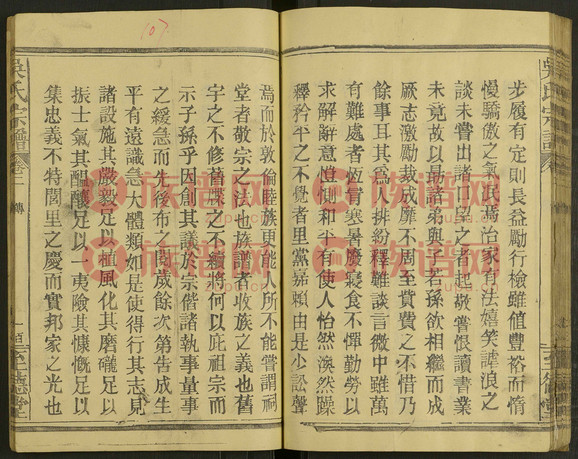 步履有定則長益勵行檢雖值豐裕而惰
慢驕傲之氣民焉治家有法嬉笑謔浪之
談未嘗出諸口望之者起敬嘗恨讀書業
未竟故以勗諸弟與
若孫欲相繼而成
厥志激勵裁成靡不周至貲費之不惜乃
餘事耳其為人排紛釋難談言微中雖萬
有難處者恆冒寒暑廢寢食不憚勤勞以
求解辭意愷惻和平有使人怡然渙然躁
釋矜平之不覺者里黨嘉賴由是少訟聲
焉而於敦倫睦族更能人所不能嘗謂祠
堂者敬宗之法也族譜者收族之義也舊
宇之不修舊譜之不續將何以庇祖宗而
示子孫乎因創其議於宗偕諸執事量事
之緩急而先後布之閱歲餘次第告成生
平有遠識急大體類如是使得行其志見
諸設施其嚴毅足以植風化其磨礲足以
振士氣其醞釀足以一夷險其慷慨足以
集忠義不特閭里之慶而實邦家之光也
吳氏宗譜
卷二
傳
一百
至德堂
吳氏宗譜
107
族谱网
zupu.cn